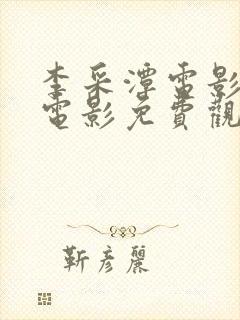 李采潭電影
電影免費觀
靳彦麗